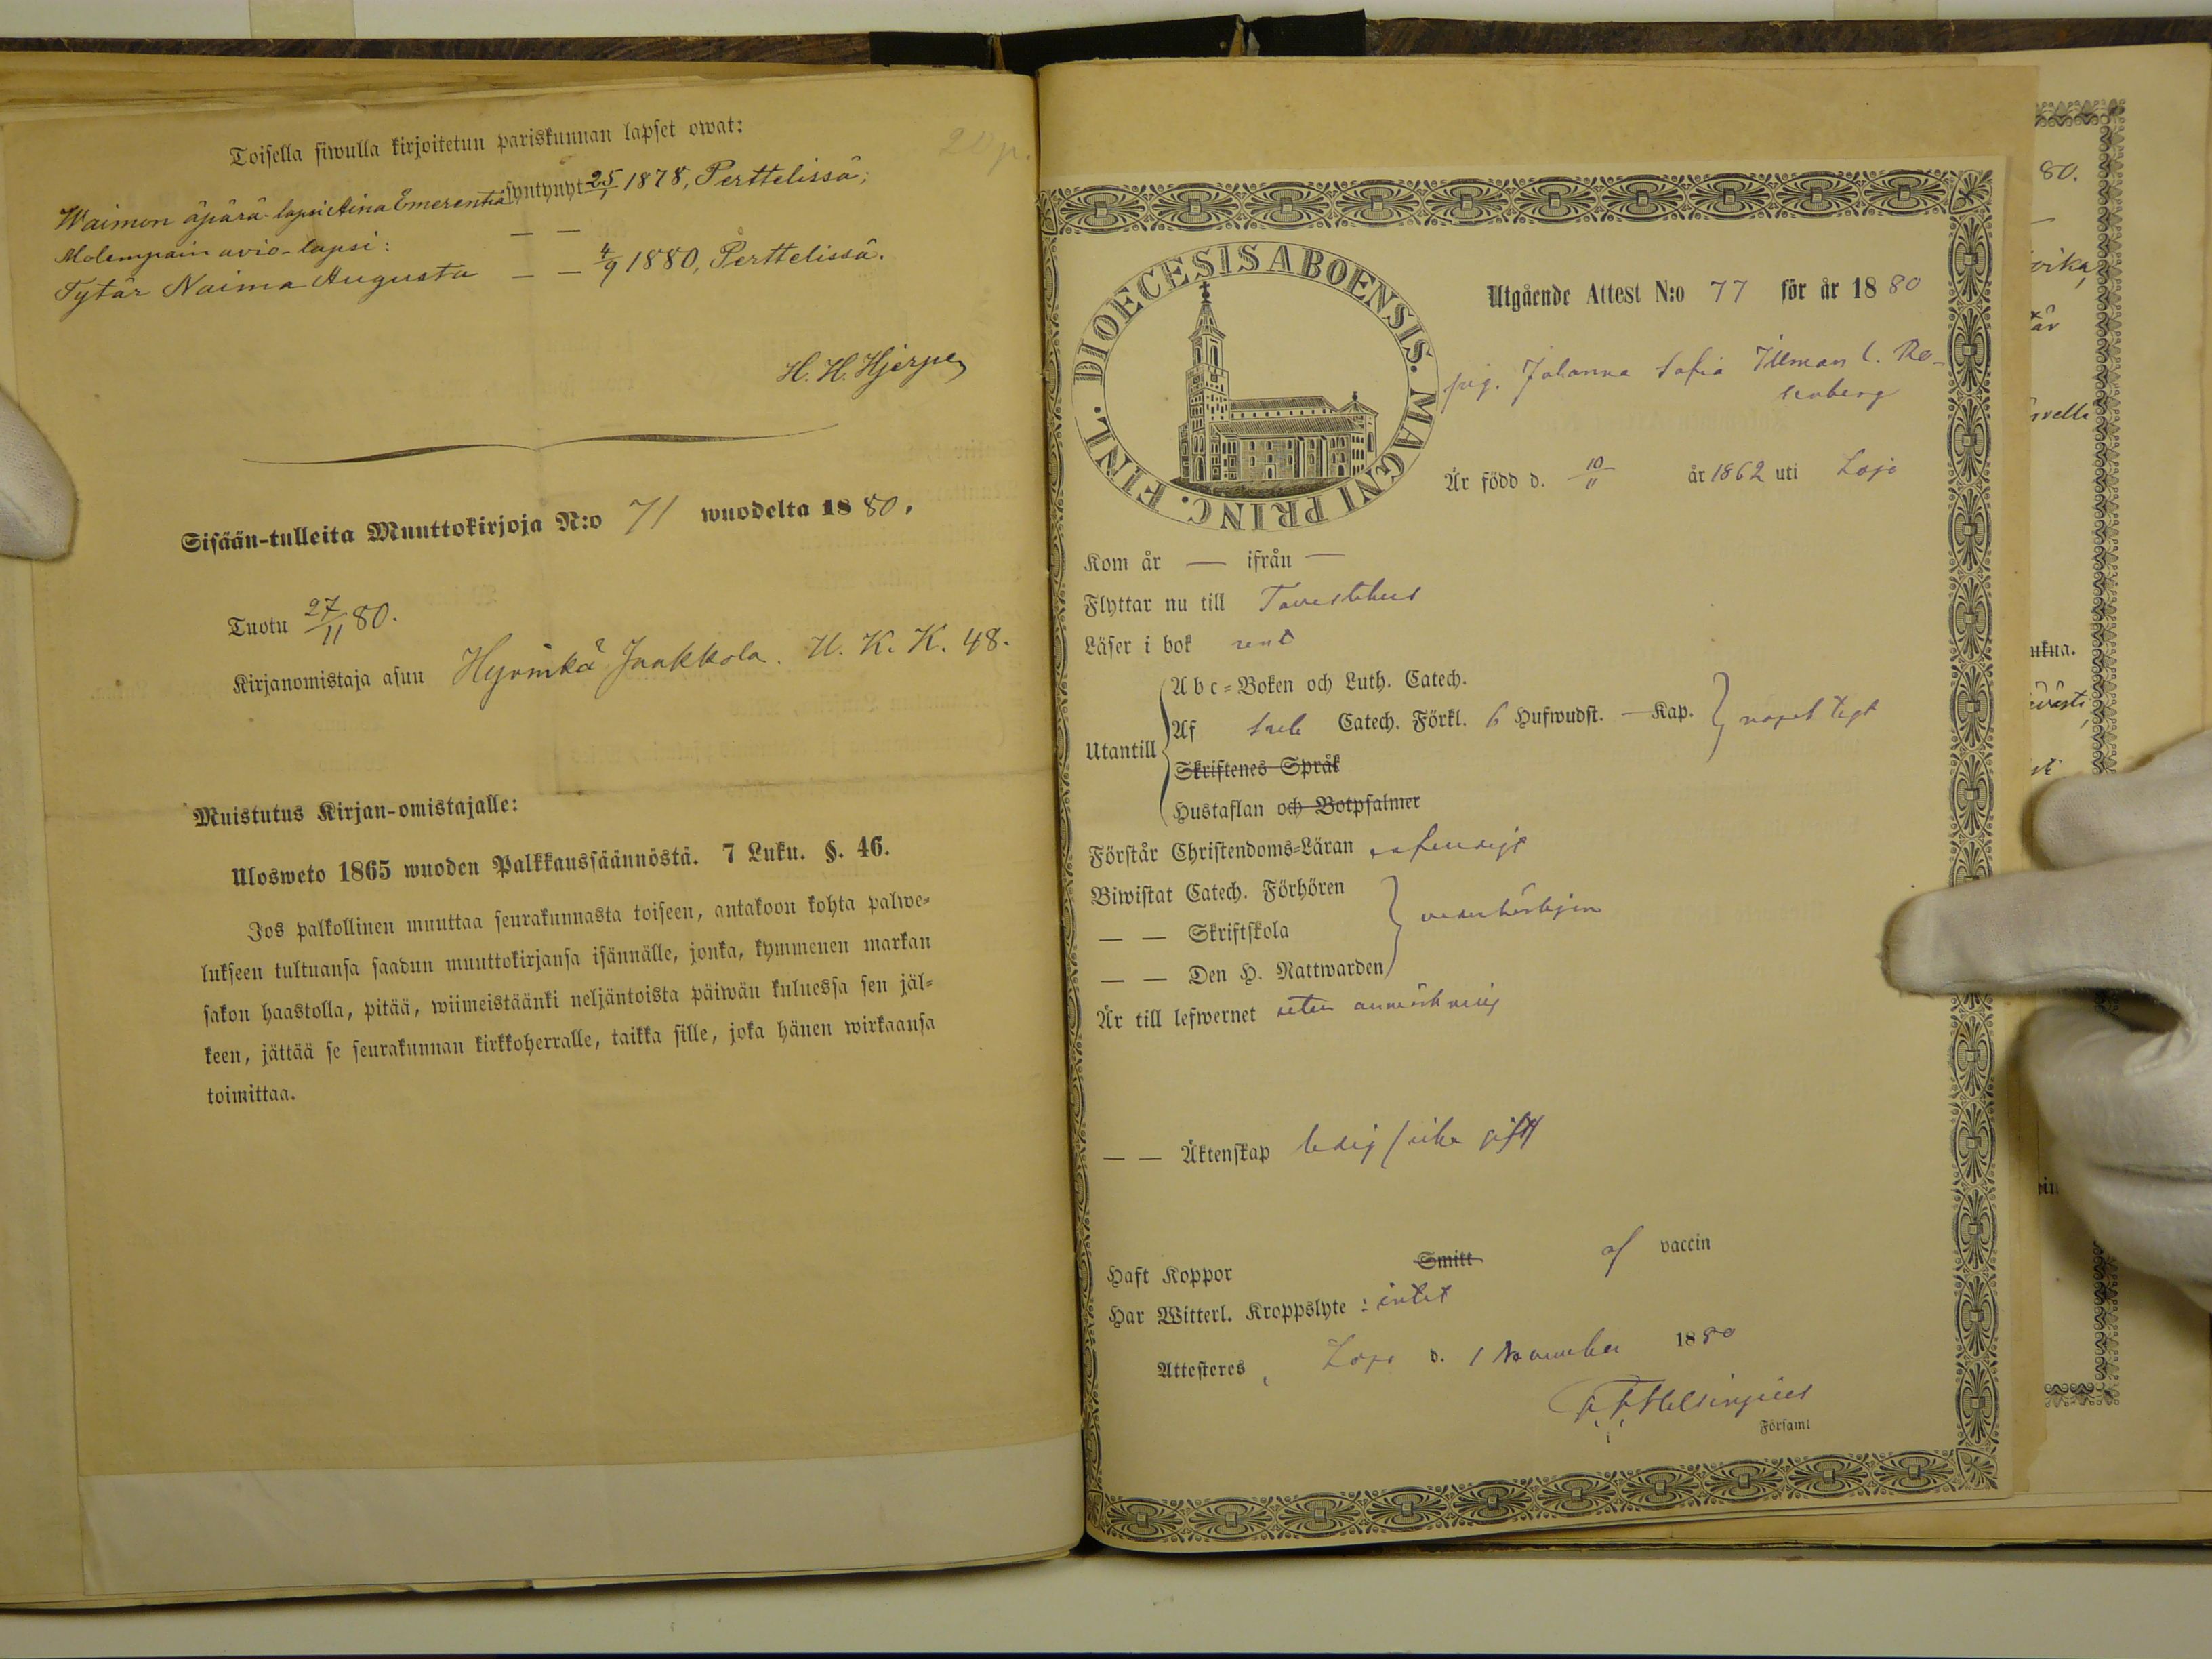 Toisella siwulla kirjoitetun pariskunnan lapset owat:
Waimon äpärä-lapsi Aina Emerentia syntynyt 25/1 1878, Perttelissä;
Molempain avio-lapsi: — —
Tytär Naima Augusta — — 4/9 1880, Perttelissä.
H. H. Hjerpe
Sisään-tulleita Muuttokirjoja N:o 71 wuodelta 1880.
Tuotu 27/11 80.
Kirjanomistaja asuu Hyvinkä Jaakkola. U. K. K. 48.
Muistutus Kirjan-omistajalle:
Ulosweto 1865 wuoden Palkkaussäännöstä. 7 Luku. §. 46.
Jos palkollinen muuttaa seurakunnasta toiseen, antakoon kohta palwe-
lukseen tultuansa saadun muuttokirjansa isännälle, jonka, kymmenen markan
sakon haastolla, pitää, wiimeistäänki neljäntoista päiwän kuluessa sen jäl-
keen, jättää se seurakunnan kirkkoherralle, taikka sille, joka hänen wirkaansa
toimittaa.
20 p.
FINL. DIOECESIS ABOENSIS. MAGNI PRINC.
Utgående Attest N:o 77 för år 1880
pig. Johanna Sofia Illman l. Ro-
senberg
Är född d. 10/11 år 1862 uti Lojo
Kom år — ifrån —
Flyttar nu till Tavestehus
Läser i bok rent
Utantill
Abc-Boken och Luth. Catech.
Af Catech. Förkl. 6 Hufwudst. — Kap. något tegt
Skriftenes Språk
Hustaflan och Botpsalmer
Förstår Christendoms-Läran
Biwistat Catech. Förhören
— — Skriftskola vederbörligen
— — Den H. Nattwarden
Är till lefwernet utan anmärkning
— — Äktenskap ledig (icke gift)
Haft Koppor Smitt af vaccin
Har Witterl. Kroppslyte: intet
Attesteres, Lojo d. 1 November 1880
Helsingius
Församl
80.